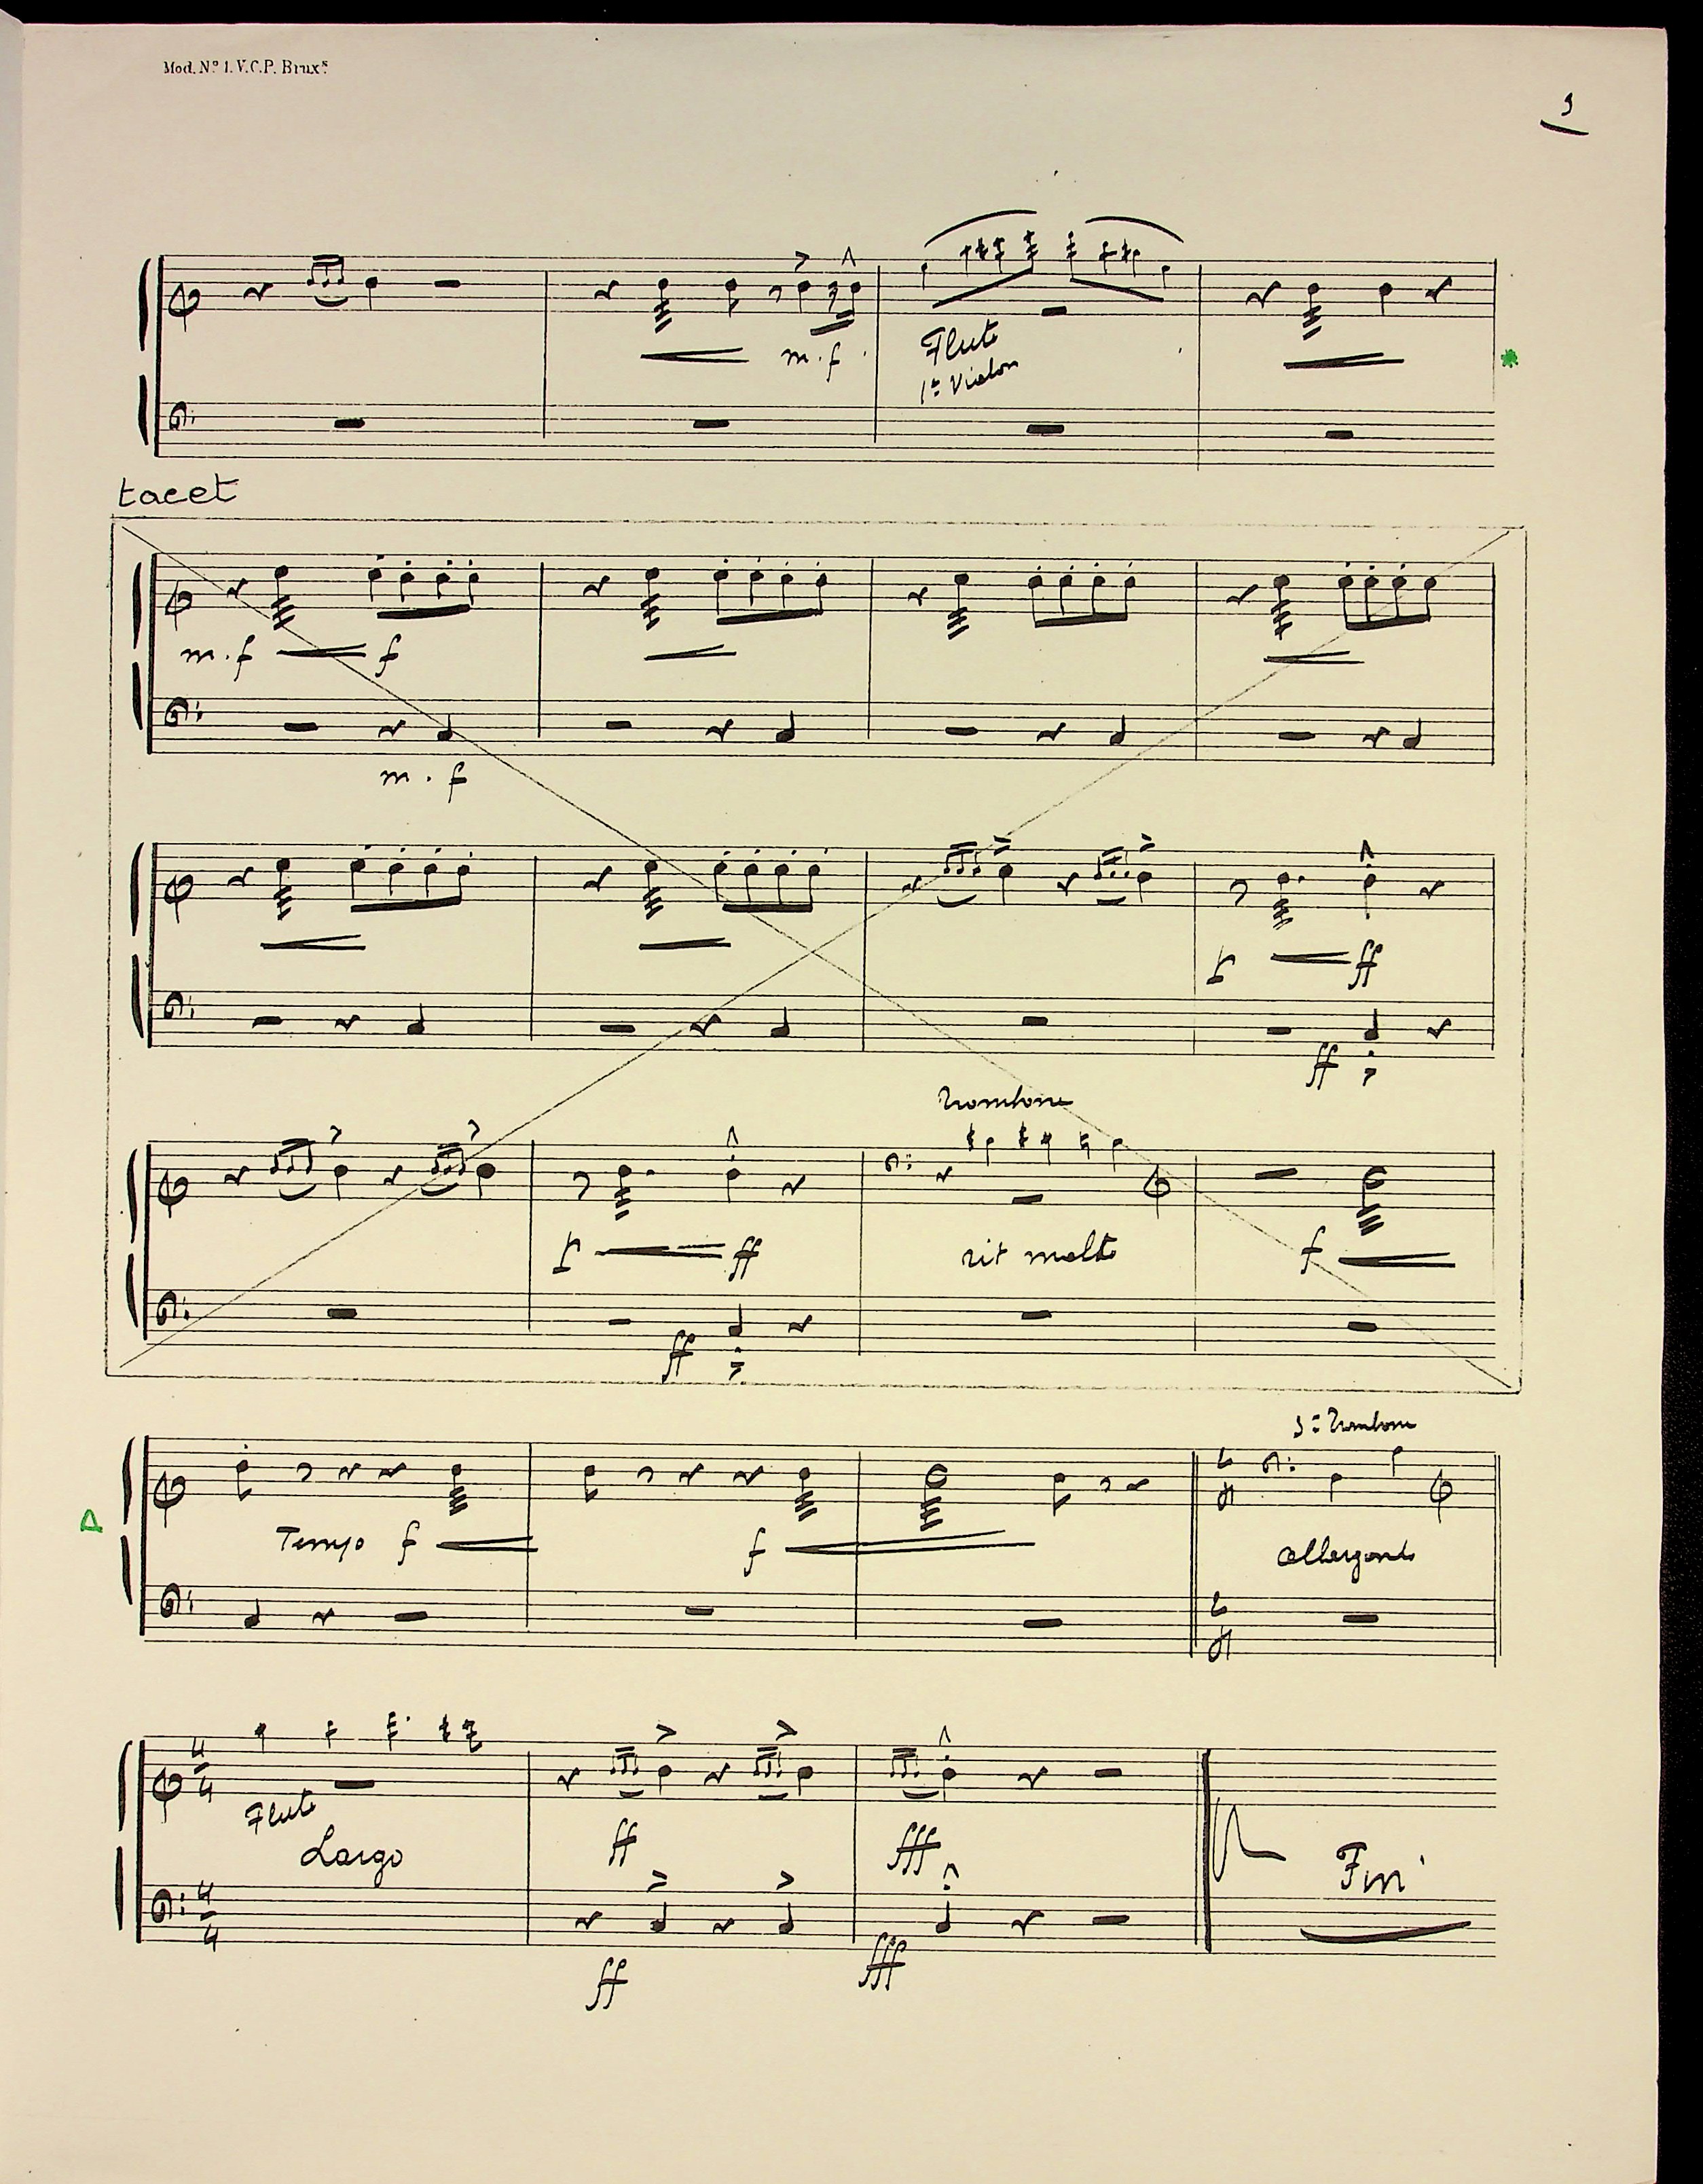 Mod. Nº 1. V.C.P. Brux.s
m.f
Flute
1º Violon
tacet
m.f f
m.f
p ff
ff
Trombone
p ff rit molto f
ff
3º Trombone
Tempo f f allargando
Flute
Largo ff fff
Fin
ff fff